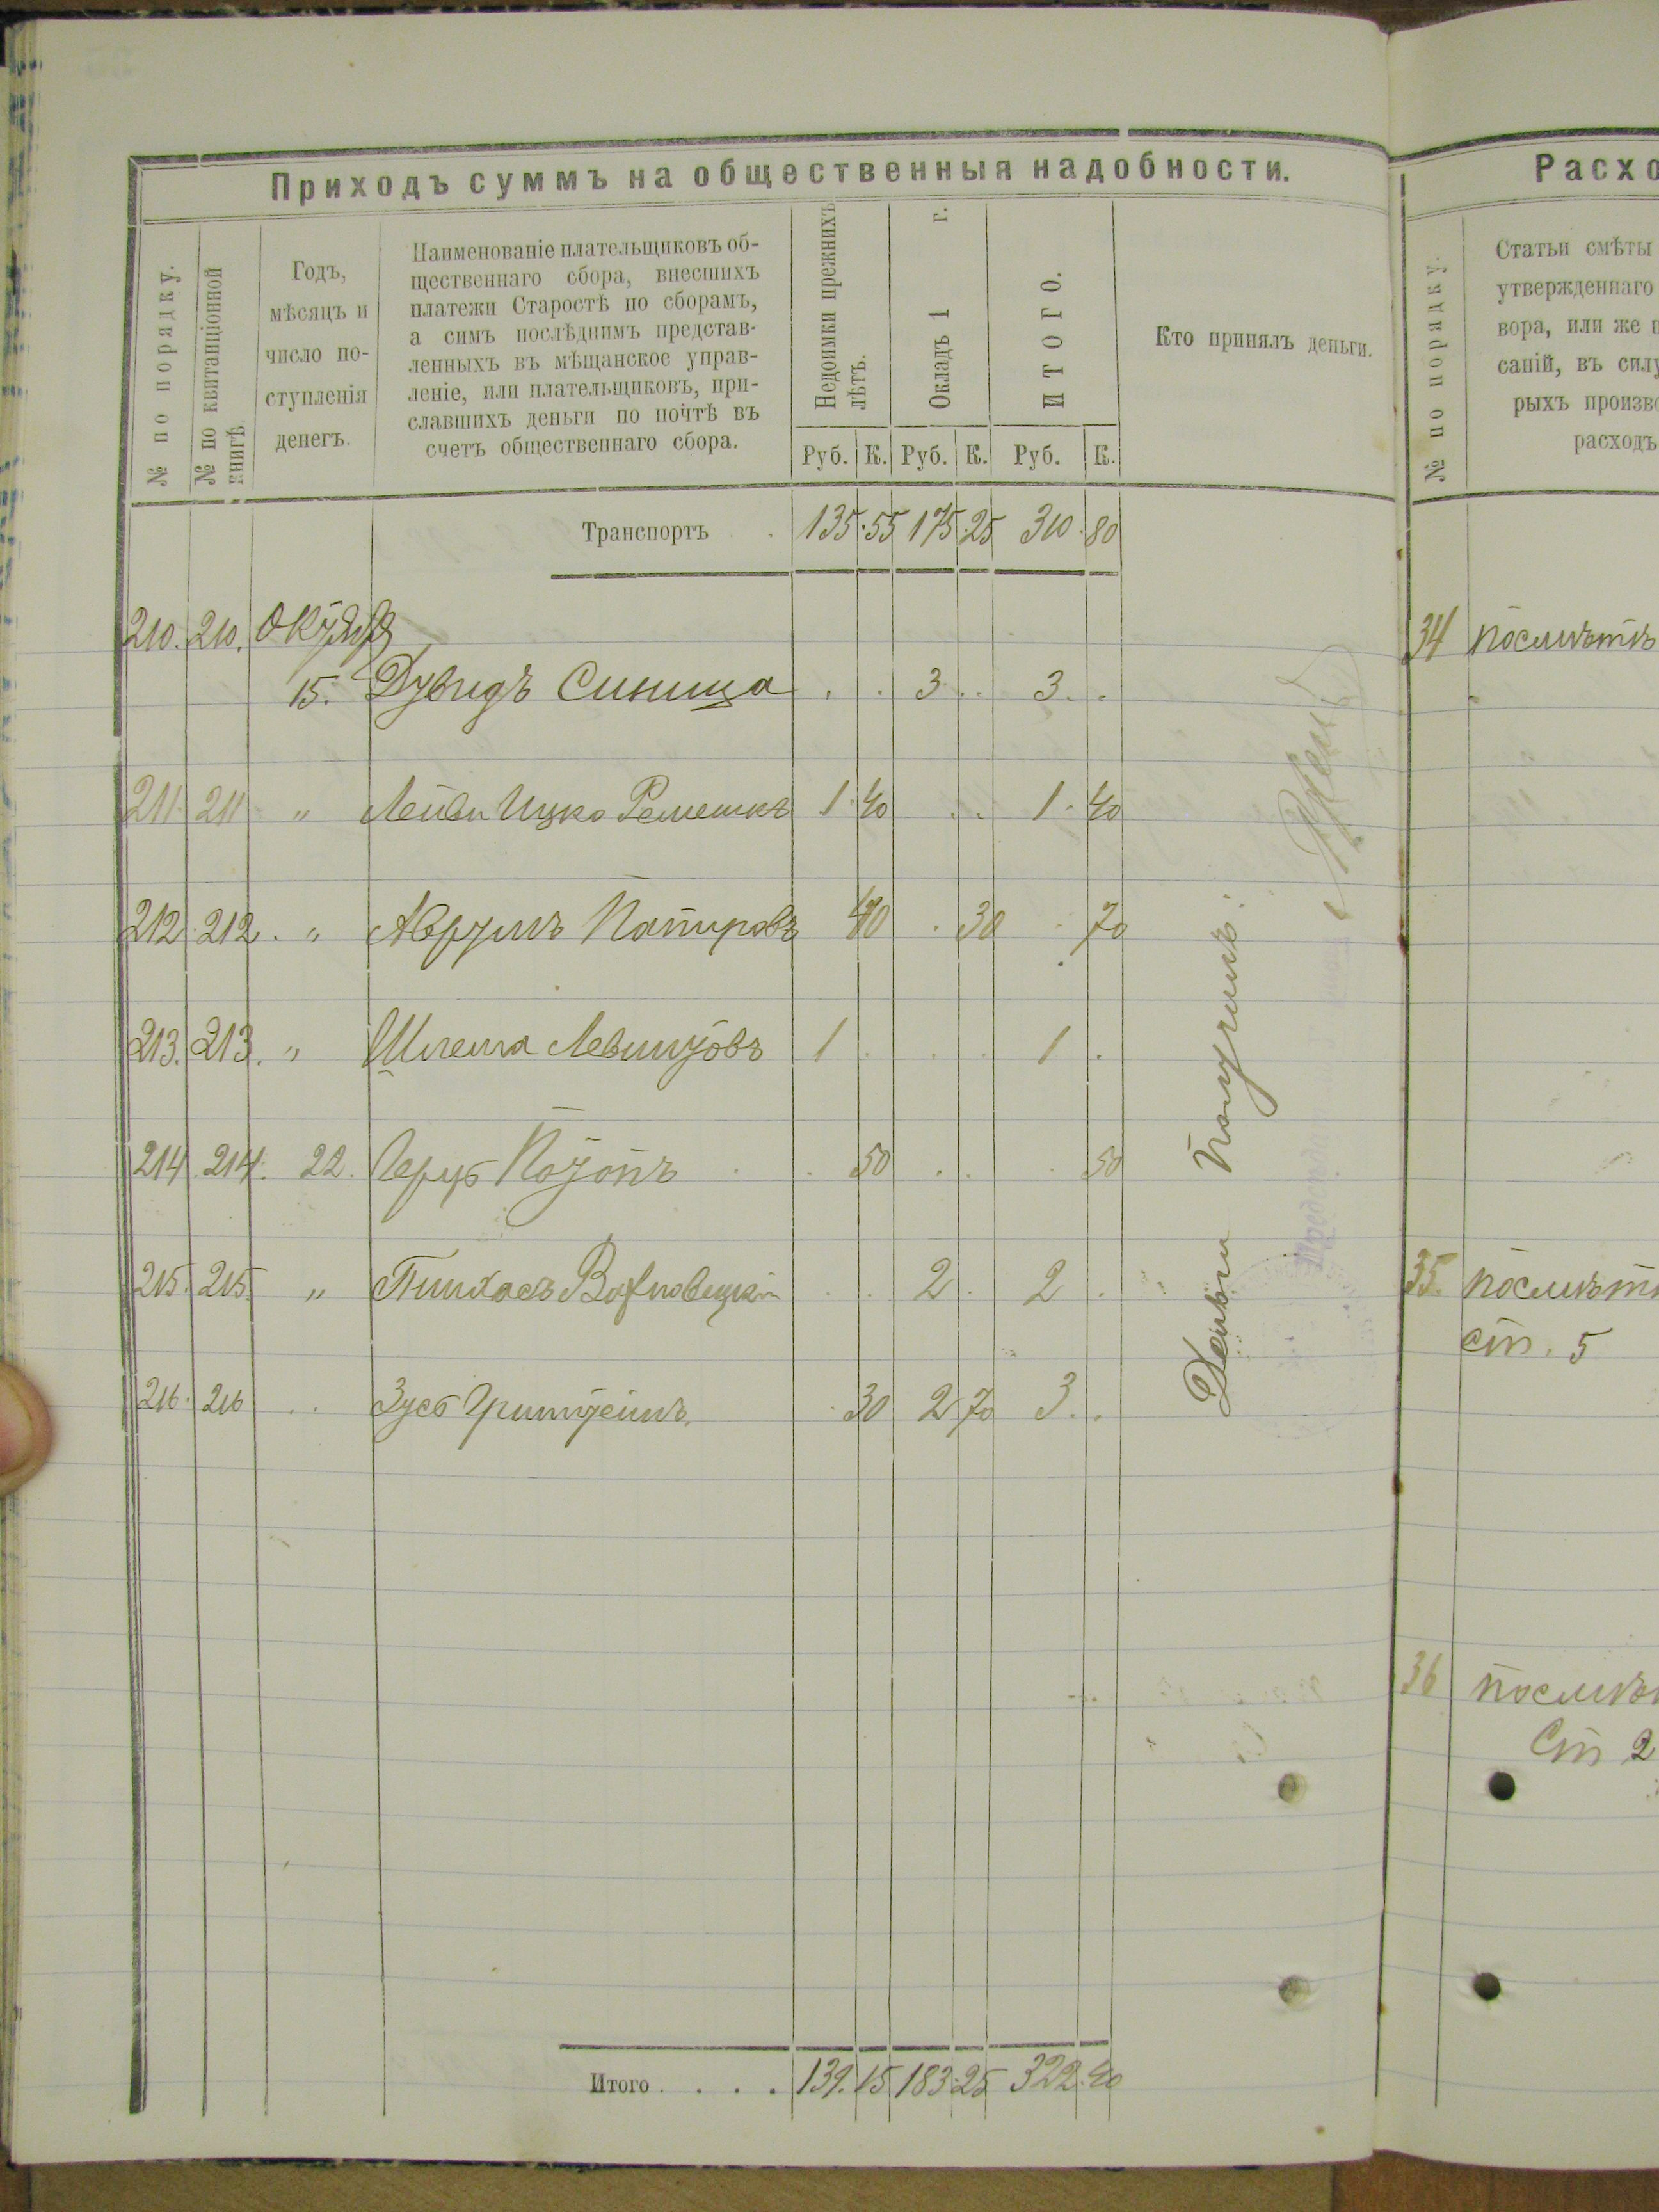 Приходъ суммъ на общественныя надобности.
№ по порядку.
№ по квитанціонной
книгѣ.
Годъ,
мѣсяцъ и
число по-
ступленія
денегъ.
Наименованіе плательщиковъ об-
щественнаго сбора, внесшихъ
платежи Старостѣ по сборамъ,
а симъ послѣднимъ представ-
ленныхъ въ мѣщанское управ-
леніе, или плательщиковъ, при-
славшихъ деньги по почтѣ въ
счетъ общественнаго сбора.
Недоимки прежнихъ
лѣтъ.
Окладъ 1 г.
ИТОГО.
Кто принялъ деньги.
Руб. К. Руб. К. Руб. К.
Транспортъ . . 135 55 175 25 310 80
210. 210.
15. Дувидъ Синица 3 3
211 211 " Лейви Ицко 1 40 1 40
212 212 " Аврумъ 40 30 70
213. 213. " Шлема 1 1
214 214. 22. 50 50
215. 215. " Пинхасъ 2 2
216. 216 30 2 70 3
Деньги получилъ:
Итого . . . . 139 15 183 25 322 40
Расхо
№ по порядку.
Статьи смѣты
утвержденнаго
вора, или же п
саній, въ силу
рыхъ произво
расходъ
34 по смѣтѣ
35. по смѣт
ст. 5
36 по смѣ
Ст 2